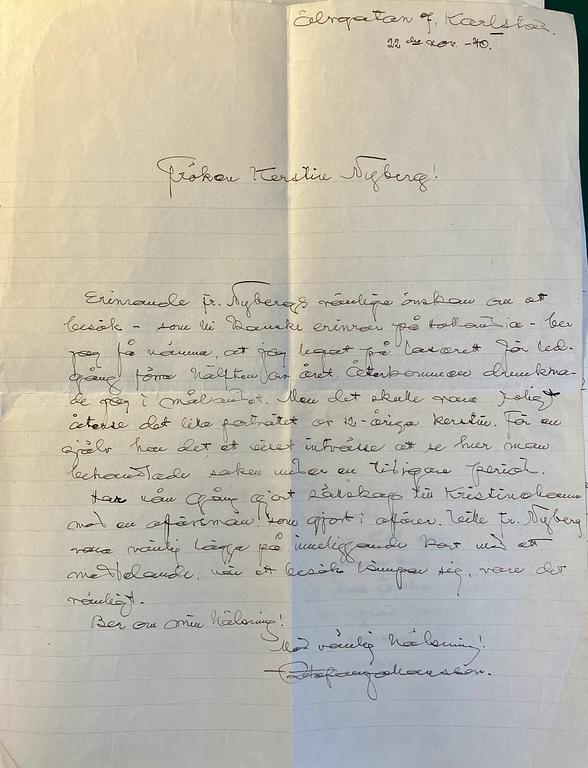 Älvgatan 7, Karlstad.
22 nov. -40.
Fröken Kerstin Nyberg!
Erinrande fr. Nybergs vänliga önskan om ett
besök - som ni kanske erinrar på - ber
jag få nämna, att jag legat på lasaret för led-
gång förra hälften av året. Återkommen drunkna-
de jag i målandet. Men det skulle vara roligt
återse det lilla porträtet av 12-åriga Kerstin. För en
själv har det ett visst intresse att se hur man
behandlade saken under en tidigare period.
Har någon gång gjort sällskap till Kristinehamn
med en affärsman som gjort i affärer. Ville fr. Nyberg
vara vänlig lägga på inneliggande kort med ett
meddelande, när ett besök lämpar sig, vore det
vänligt.
Ber om min hälsning!
Med vänlig hälsning!